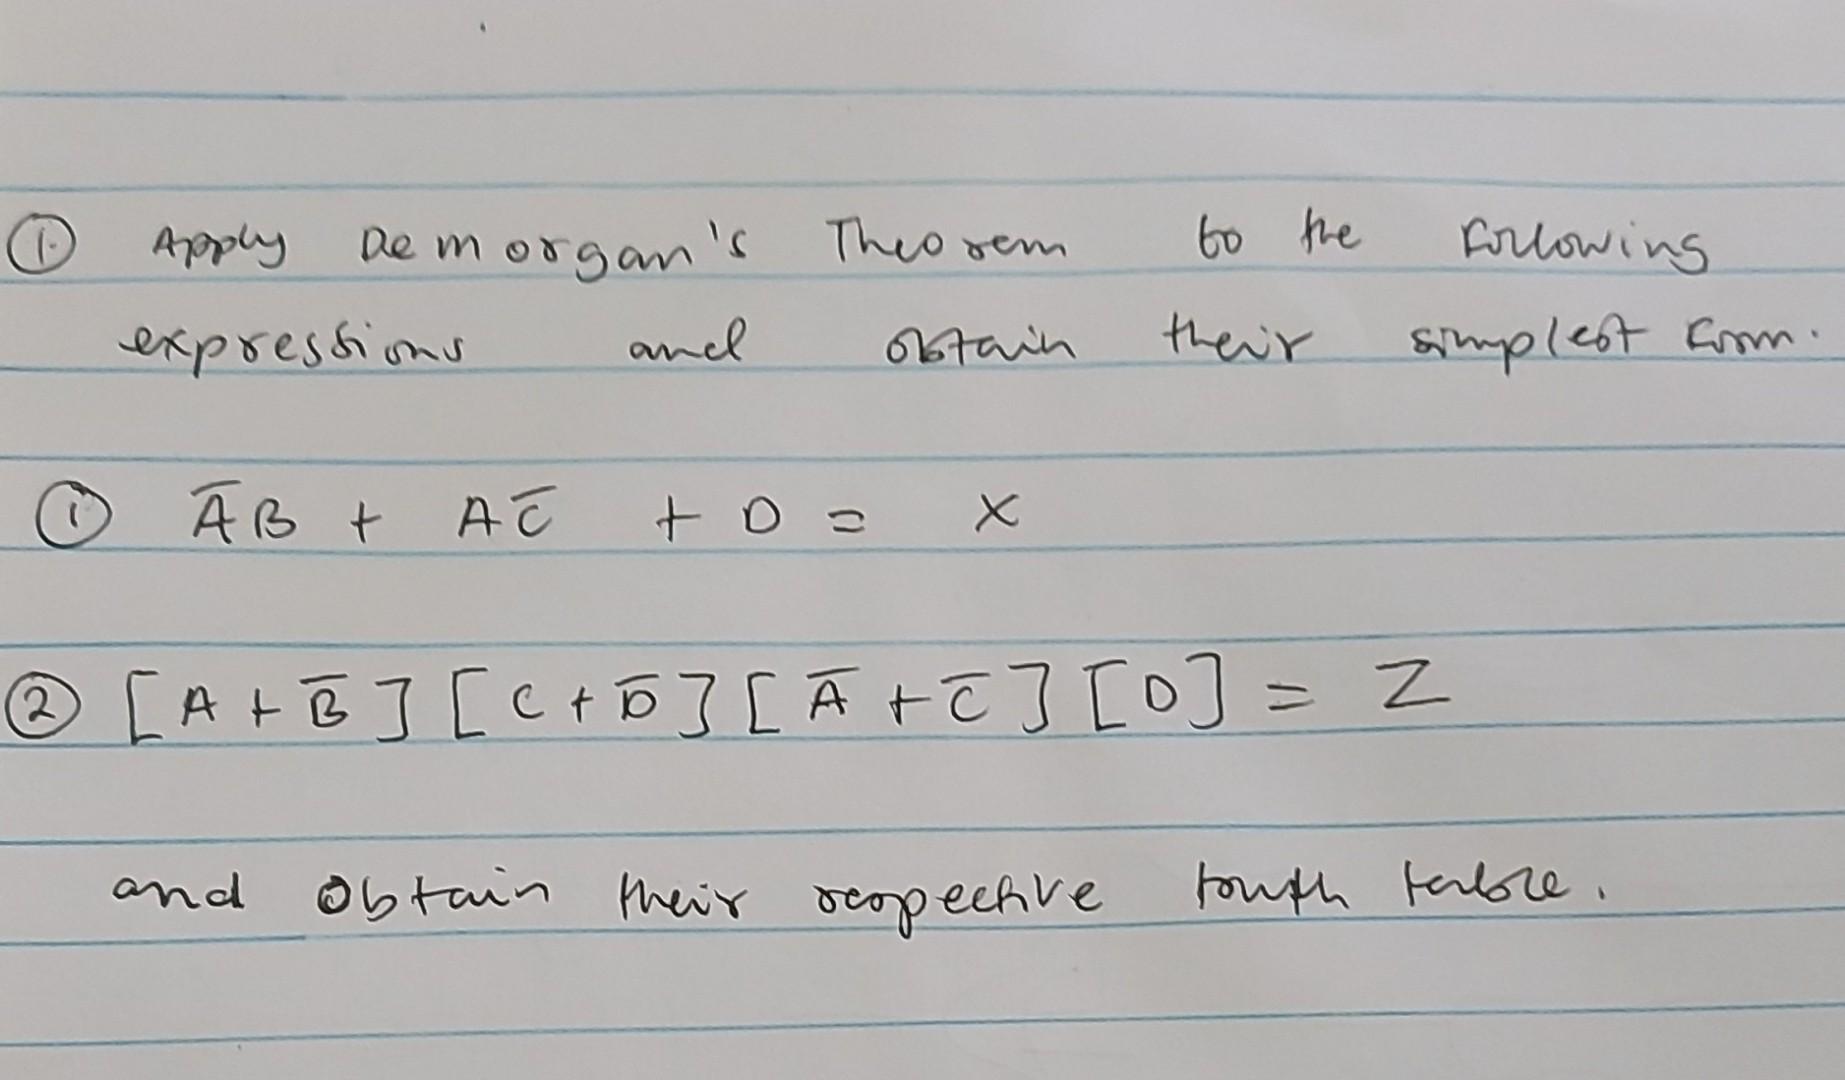 ① Apply Demorgan's Theorem to the following
expressions and obtain their simplest form.
① A̅B + AC̅ + D = X
② [A + B̅] [C + D̅] [A̅ + C̅] [D] = Z
and Obtain their respective truth table.